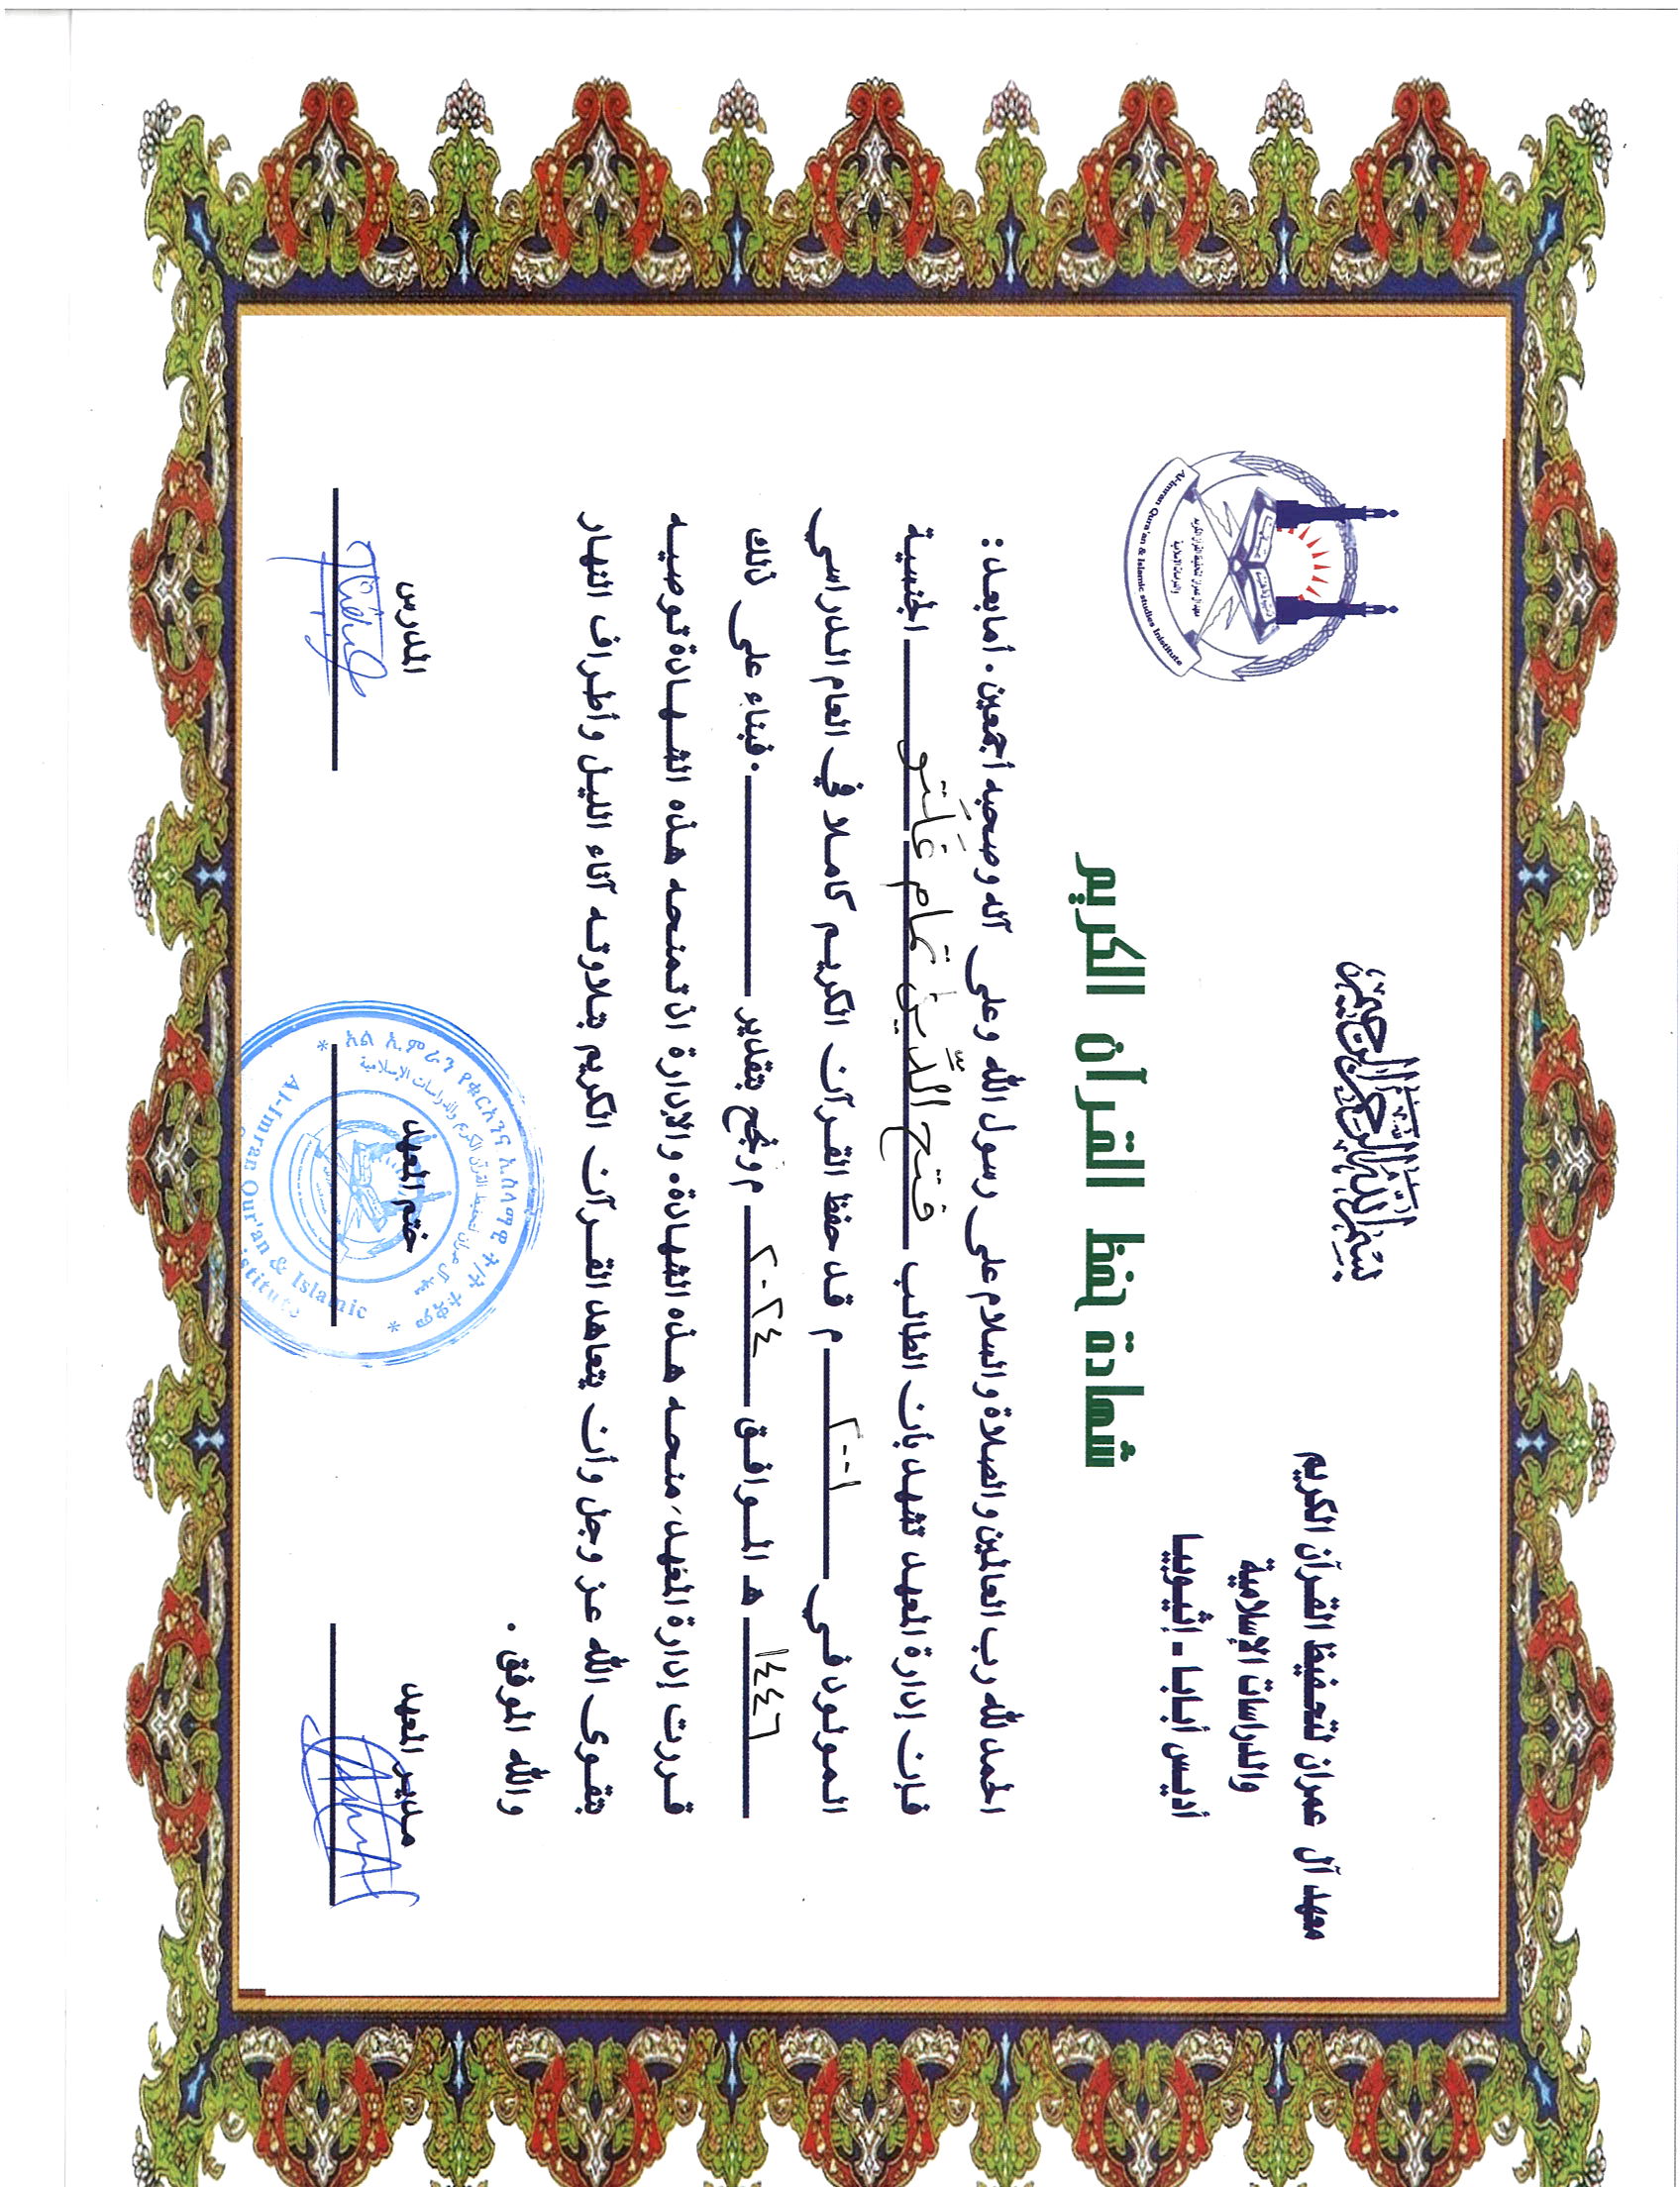 بسم الله الرحمن الرحيم
معهد آل عمران لتحفيظ القرآن الكريم
والدراسات الإسلامية
أديس أبابا - إثيوبيا
معهد آل عمران لتحفيظ القرآن الكريم
والدراسات الإسلامية
Al-Imran Qura'an & Islamic studies Inistitute
شهادة حفظ القرآن الكريم
الحمد لله رب العالمين والصلاة والسلام على رسول الله وعلى آله وصحبه أجمعين . أما بعد :
فإن إدارة المعهد تشهد بأن الطالب فتح الدّين تمام غَلَتو الجنسية
المولود في ٢٠٠١ م قد حفظ القرآن الكريم كاملا في العام الدراسي
١٤٤٦ هـ الموافق ٢٠٢٤ م ونجح بتقدير . فبناء على ذلك
قررت إدارة المعهد منحه هذه الشهادة. والإدارة إذ تمنحه هذه الشهادة توصيه
بتقوى الله عز وجل وأن يتعاهد القرآن الكريم بتلاوته آناء الليل وأطراف النهار
والله الموفق .
مدير المعهد ختم المعهد المدرس
አል ኢምራን የቁርአንና ኢስላማዊ ት/ት ተቋም
معهد آل عمران لتحفيظ القرآن الكريم والدراسات الإسلامية
Al-Imran Qur'an & Islamic